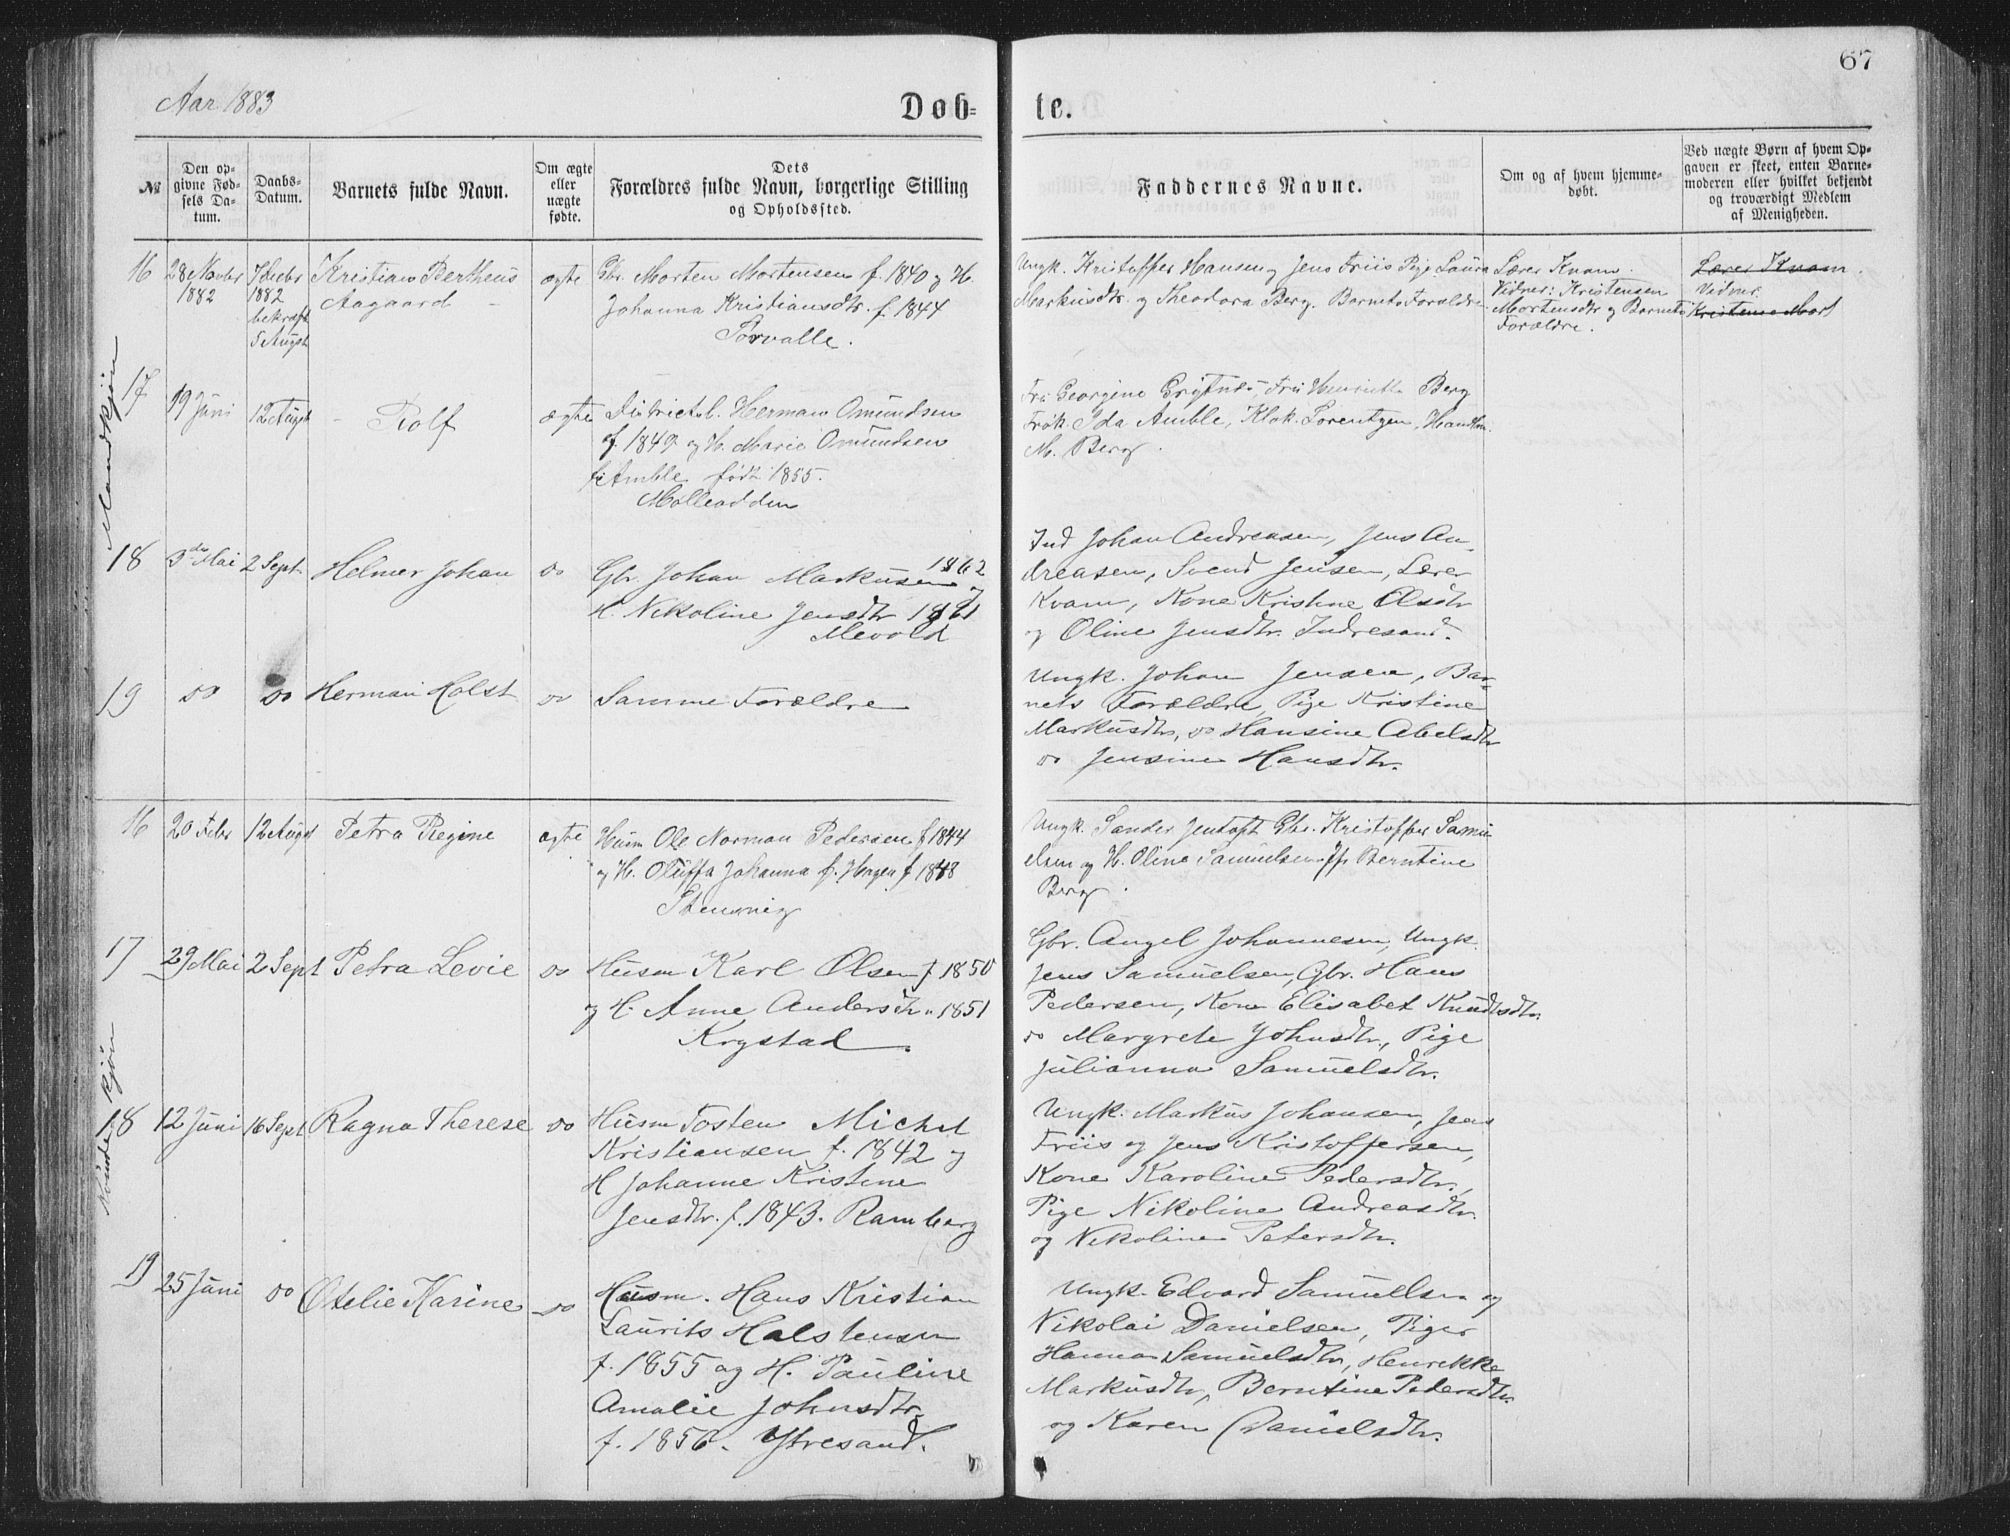 67
Aar 1883
Døb=
te.
№
Den op-
givne Fød-
sels Da-
tum.
Daabs-
Datum.
Barnets fulde Navn.
Om ægte
eller
uægte
fødte.
Dets
Forældres fulde Navn, borgerlige Stilling
og Opholdssted.
Faddernes Navne.
Om og af hvem hjemme-
døbt.
Ved uægte Børn af hvem Op-
gaven er skeet, enten Barne-
moderen eller hvilket bekjendt
og troværdigt Medlem
af Menigheden.
Mandkjön
16
28 Novbr
1882
7 Decbr
1882
bekræft
5 Augst
Kristian Bertheus
Aagaard
ægte
Gbr. Morten Mortensen f. 1840 og H.
Johanna Kristiansdtr. f. 1844
Torvalle.
Ungk. Kristoffer Hansen og Jens Friis Pige Laura
Markusdtr. og Theodora Berg. Barnets Forældre.
Lærer Kvam.
Vidner: Kristensen
Mortensdtr og Barnets
Forældre.
Lærer Kvam
Vidner
Kristensen Mort
17
19 Juni
12 August
Rolf
ægte
Districtsl. Herman Omundsen
f. 1849 og H. Marie Omundsen
f. Amble født 1855.
Molleodden
Fru Georgine Fru Henriette Berg
Frøk. Ida Amble, Klok. Lorentzen, Handlm.
M. Berg.
18
3die Mai
2 Sept
Helmer Johan
do
Gbr. Johan Markusen 1862 og
H. Nikoline Jensdtr 1861
Mevold
Ind Johan Andreasen, Jens An-
dreasen, Svend Jensen, Lærer
Kvam, Kone Kristine Olsdtr
og Oline Jensdtr. Indresand.
19
do
do
Herman Holst
do
Samme Forældre
Ungk. Johan Jensen, Bar-
nets Forældre, Pige Kristine
Markusdtr, do Hansine Abelsdtr
do Jensine Hansdtr.
Kvinde Kjön
16
20 Febr
12 August
Petra Regine
ægte
Husm Ole Norman Pedersen f 1844
og H. Oluffa Johanna f. Hagen f 1848
Ungk. Sander Jentoft Gbr. Kristoffer Samu-
elsen og H. Oline Samuelsen Jfr Berntine
Berg.
17
29 Mai
2 Sept
Petra Levie
do
Husm Karl Olsen f 1850
og H. Anne Andersdtr " 1851
Krystad.
Gbr. Angel Johannesen, Ungk.
Jens Samuelsen, Gbr. Hans
Pedersen, Kone Elisabet Knudtsdtr.
do Margrete Johnsdtr., Pige
Julianna Samuelsdtr.
18
12 Juni
16 Sept
Ragna Therese
do
Husm Tosten Michel
Kristiansen f. 1842 og
H Johanne Kristine
Jensdtr. f. 1843. Ramberg
Ungk. Markus Johansen, Jens
Friis og Jens Kristoffersen,
Kone Karoline Pedersdtr.,
Pige Nikoline Andreasdtr.
og Nikoline Petersdtr.
19
25 Juni
do
Otelie Karine
do
Husm. Hans Kristian
Laurits Halstensen
f. 1855 og H. Pauline
Amalie Johnsdtr.
f. 1856. Ytresand.
Ungk. Edvard Samuelsen og
Nikolai Danielsen, Piger
Hanna Samuelsdtr, Henrikke
Markusdtr, Berntine Pedersdtr.
og Karen Danielsdtr.